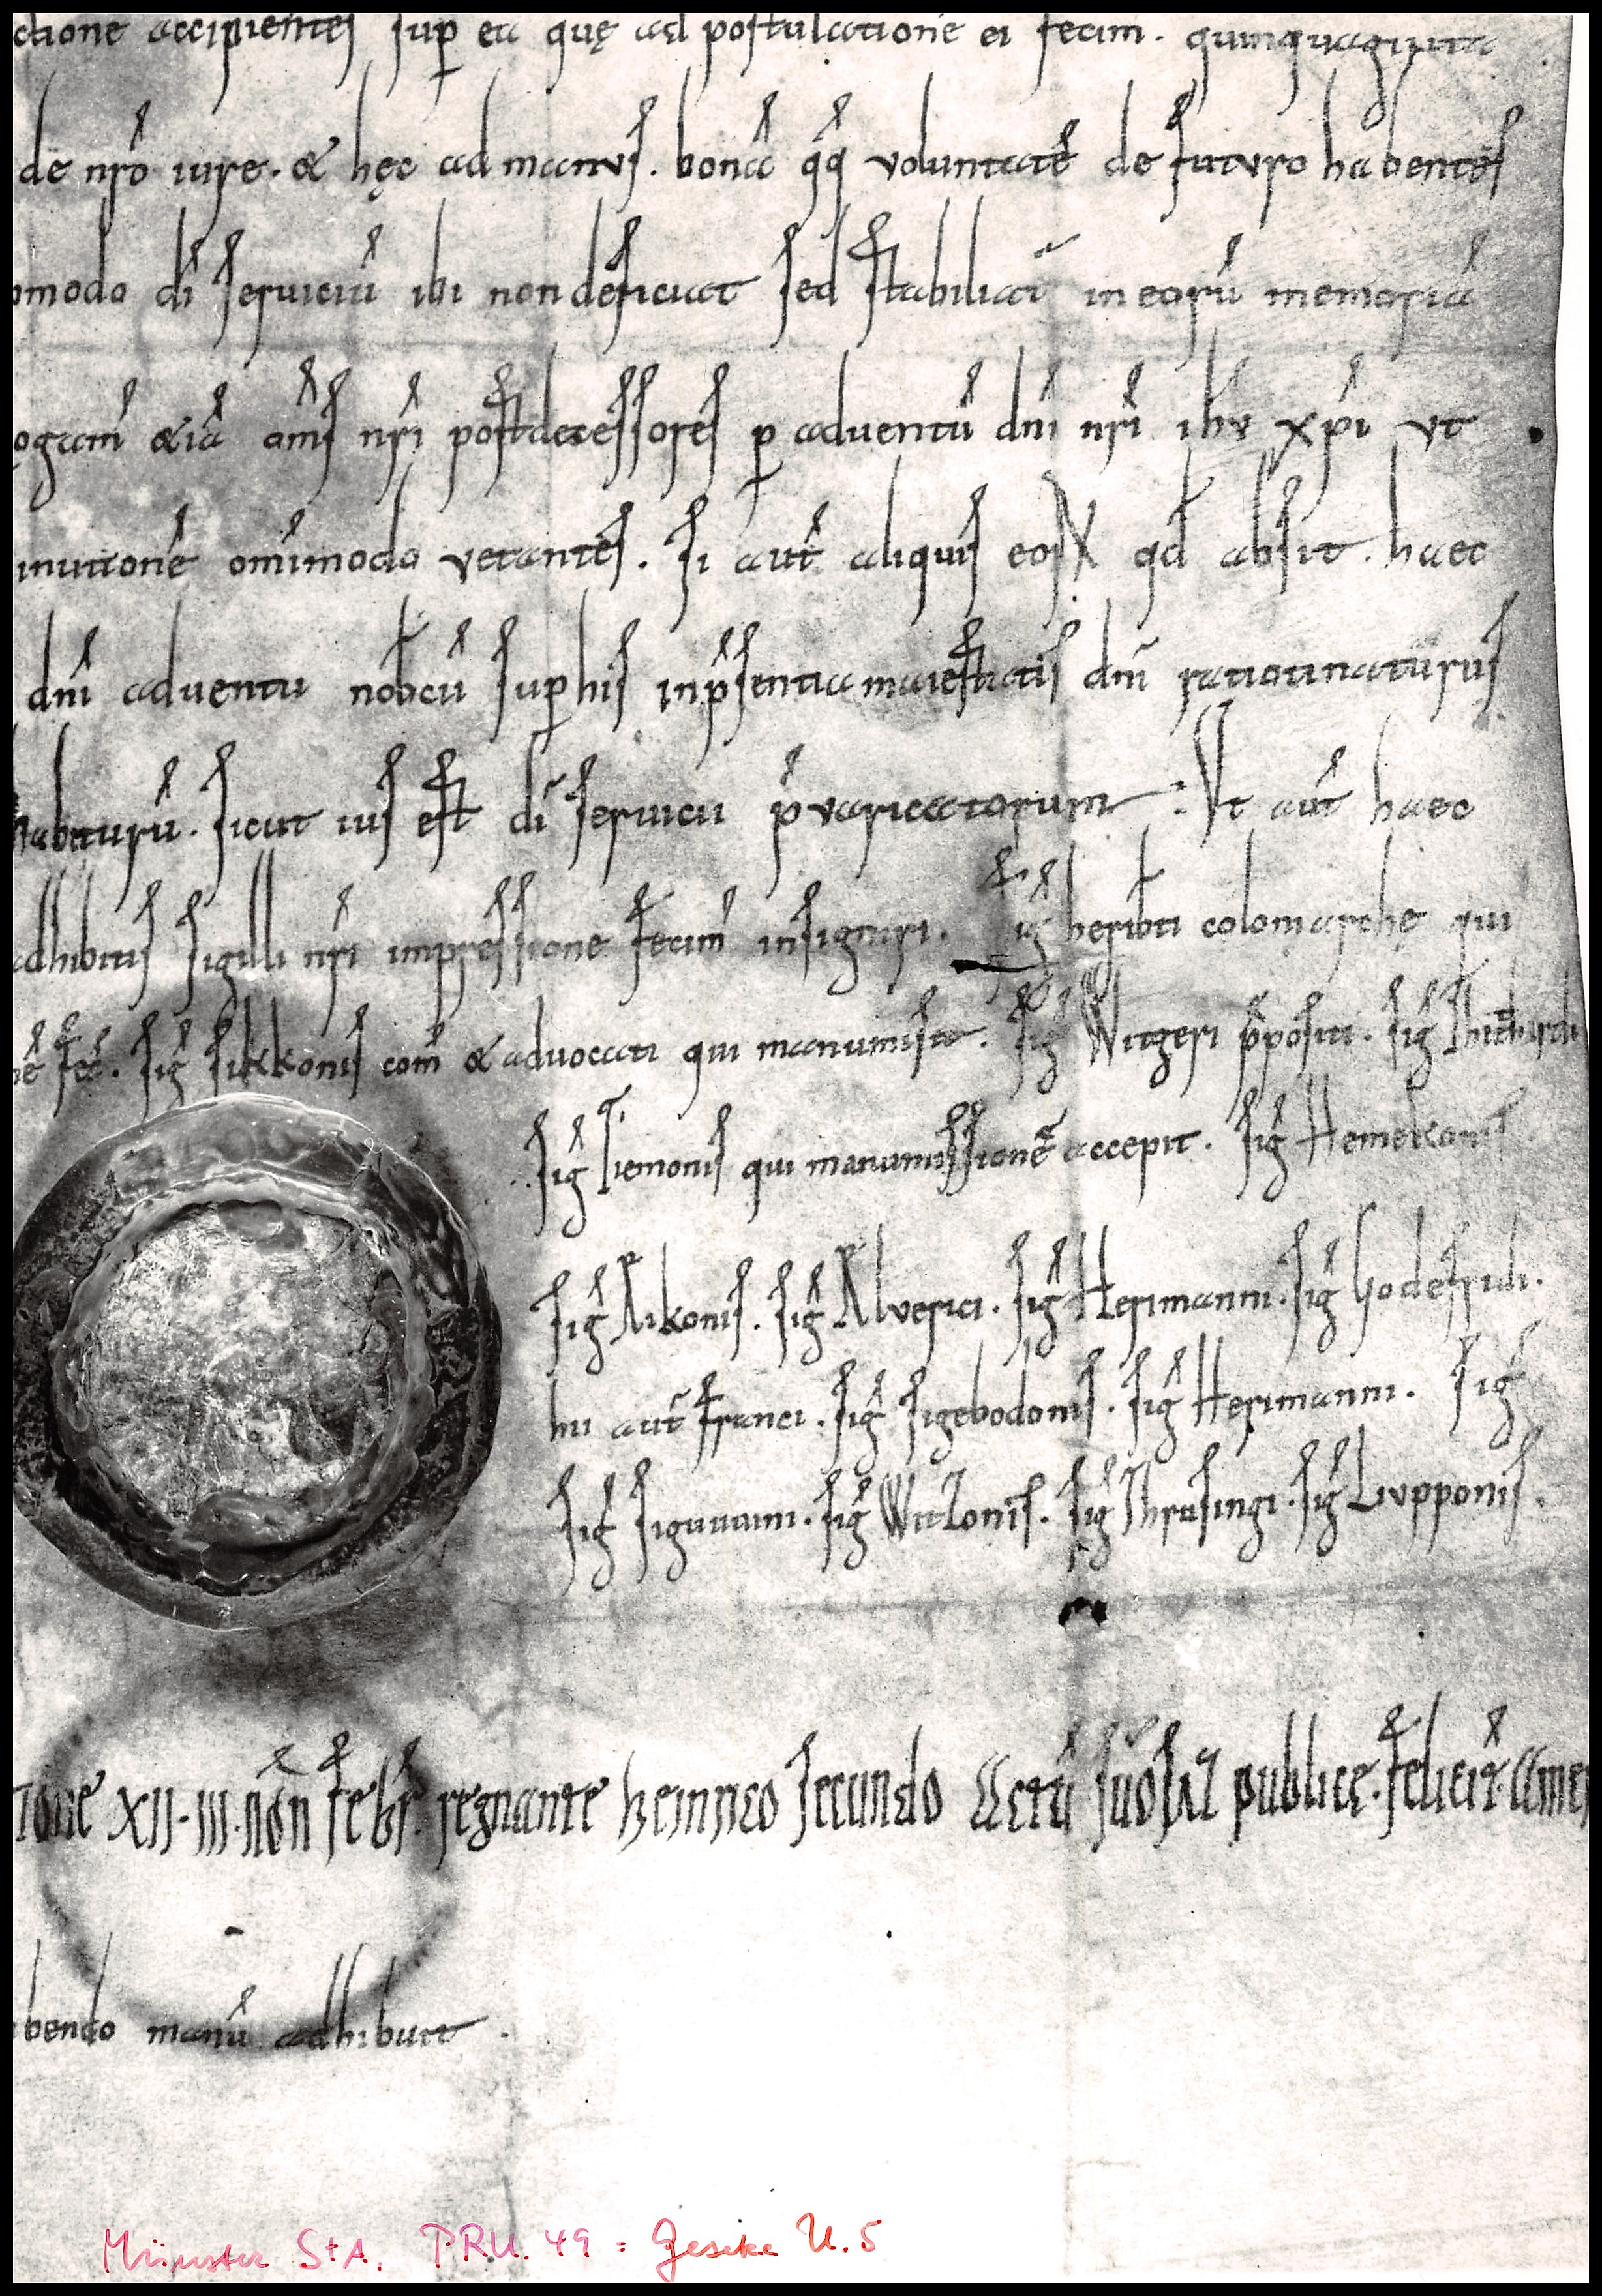 ctione accipientes sup ea quę ad postulatione ei fecim. quinquaginta
de nrō iure. & hęc ad manus. bonā q̄q voluntatē de futuro habentes
omodo dī serviciū ibi non deficiat sed stabiliat in eorū memoriā
ogam̄ &iā om̄s nrī postdecessores p adventū dnī nrī ihu xpī ut
inutionē om̄imodo vetantes. Si aut̄ aliquis eoꝝ qd absit. haec
dnī adventu nobcū sup his in p̄sentia maiestatis dnī ratiocinaturus
habiturū. sicut ius est dī servicii p̄varicatorum. Ut aut̄ haec
adhibitis sigilli nrī impressione fecim̄ insigniri. Siḡ heribti colomarchę qui
nē fec̄. Siḡ Sikkonis com̄ & advocati qui manumisit. Siḡ Witgeri p̄positi. Siḡ Thiethardi
Siḡ Tiemonis qui manumissionē accepit. Siḡ Hemekonis
Siḡ Aikonis. Siḡ Alverici. Siḡ Herimanni. Siḡ Godefridi.
hii aut̄ franci. Siḡ Sigebodonis. Siḡ Herimanni. Siḡ
Siḡ Siguuuini. Siḡ Witzonis. Siḡ Thrasingi. Siḡ Livpponis.
tione XII. III. nōn febr. regnante heinrico secundo Actū suosaz publicę. feliciṫ. Amen
bendo manū adhibuit.
Münster StA. PRU. 49 = Geseke U. 5